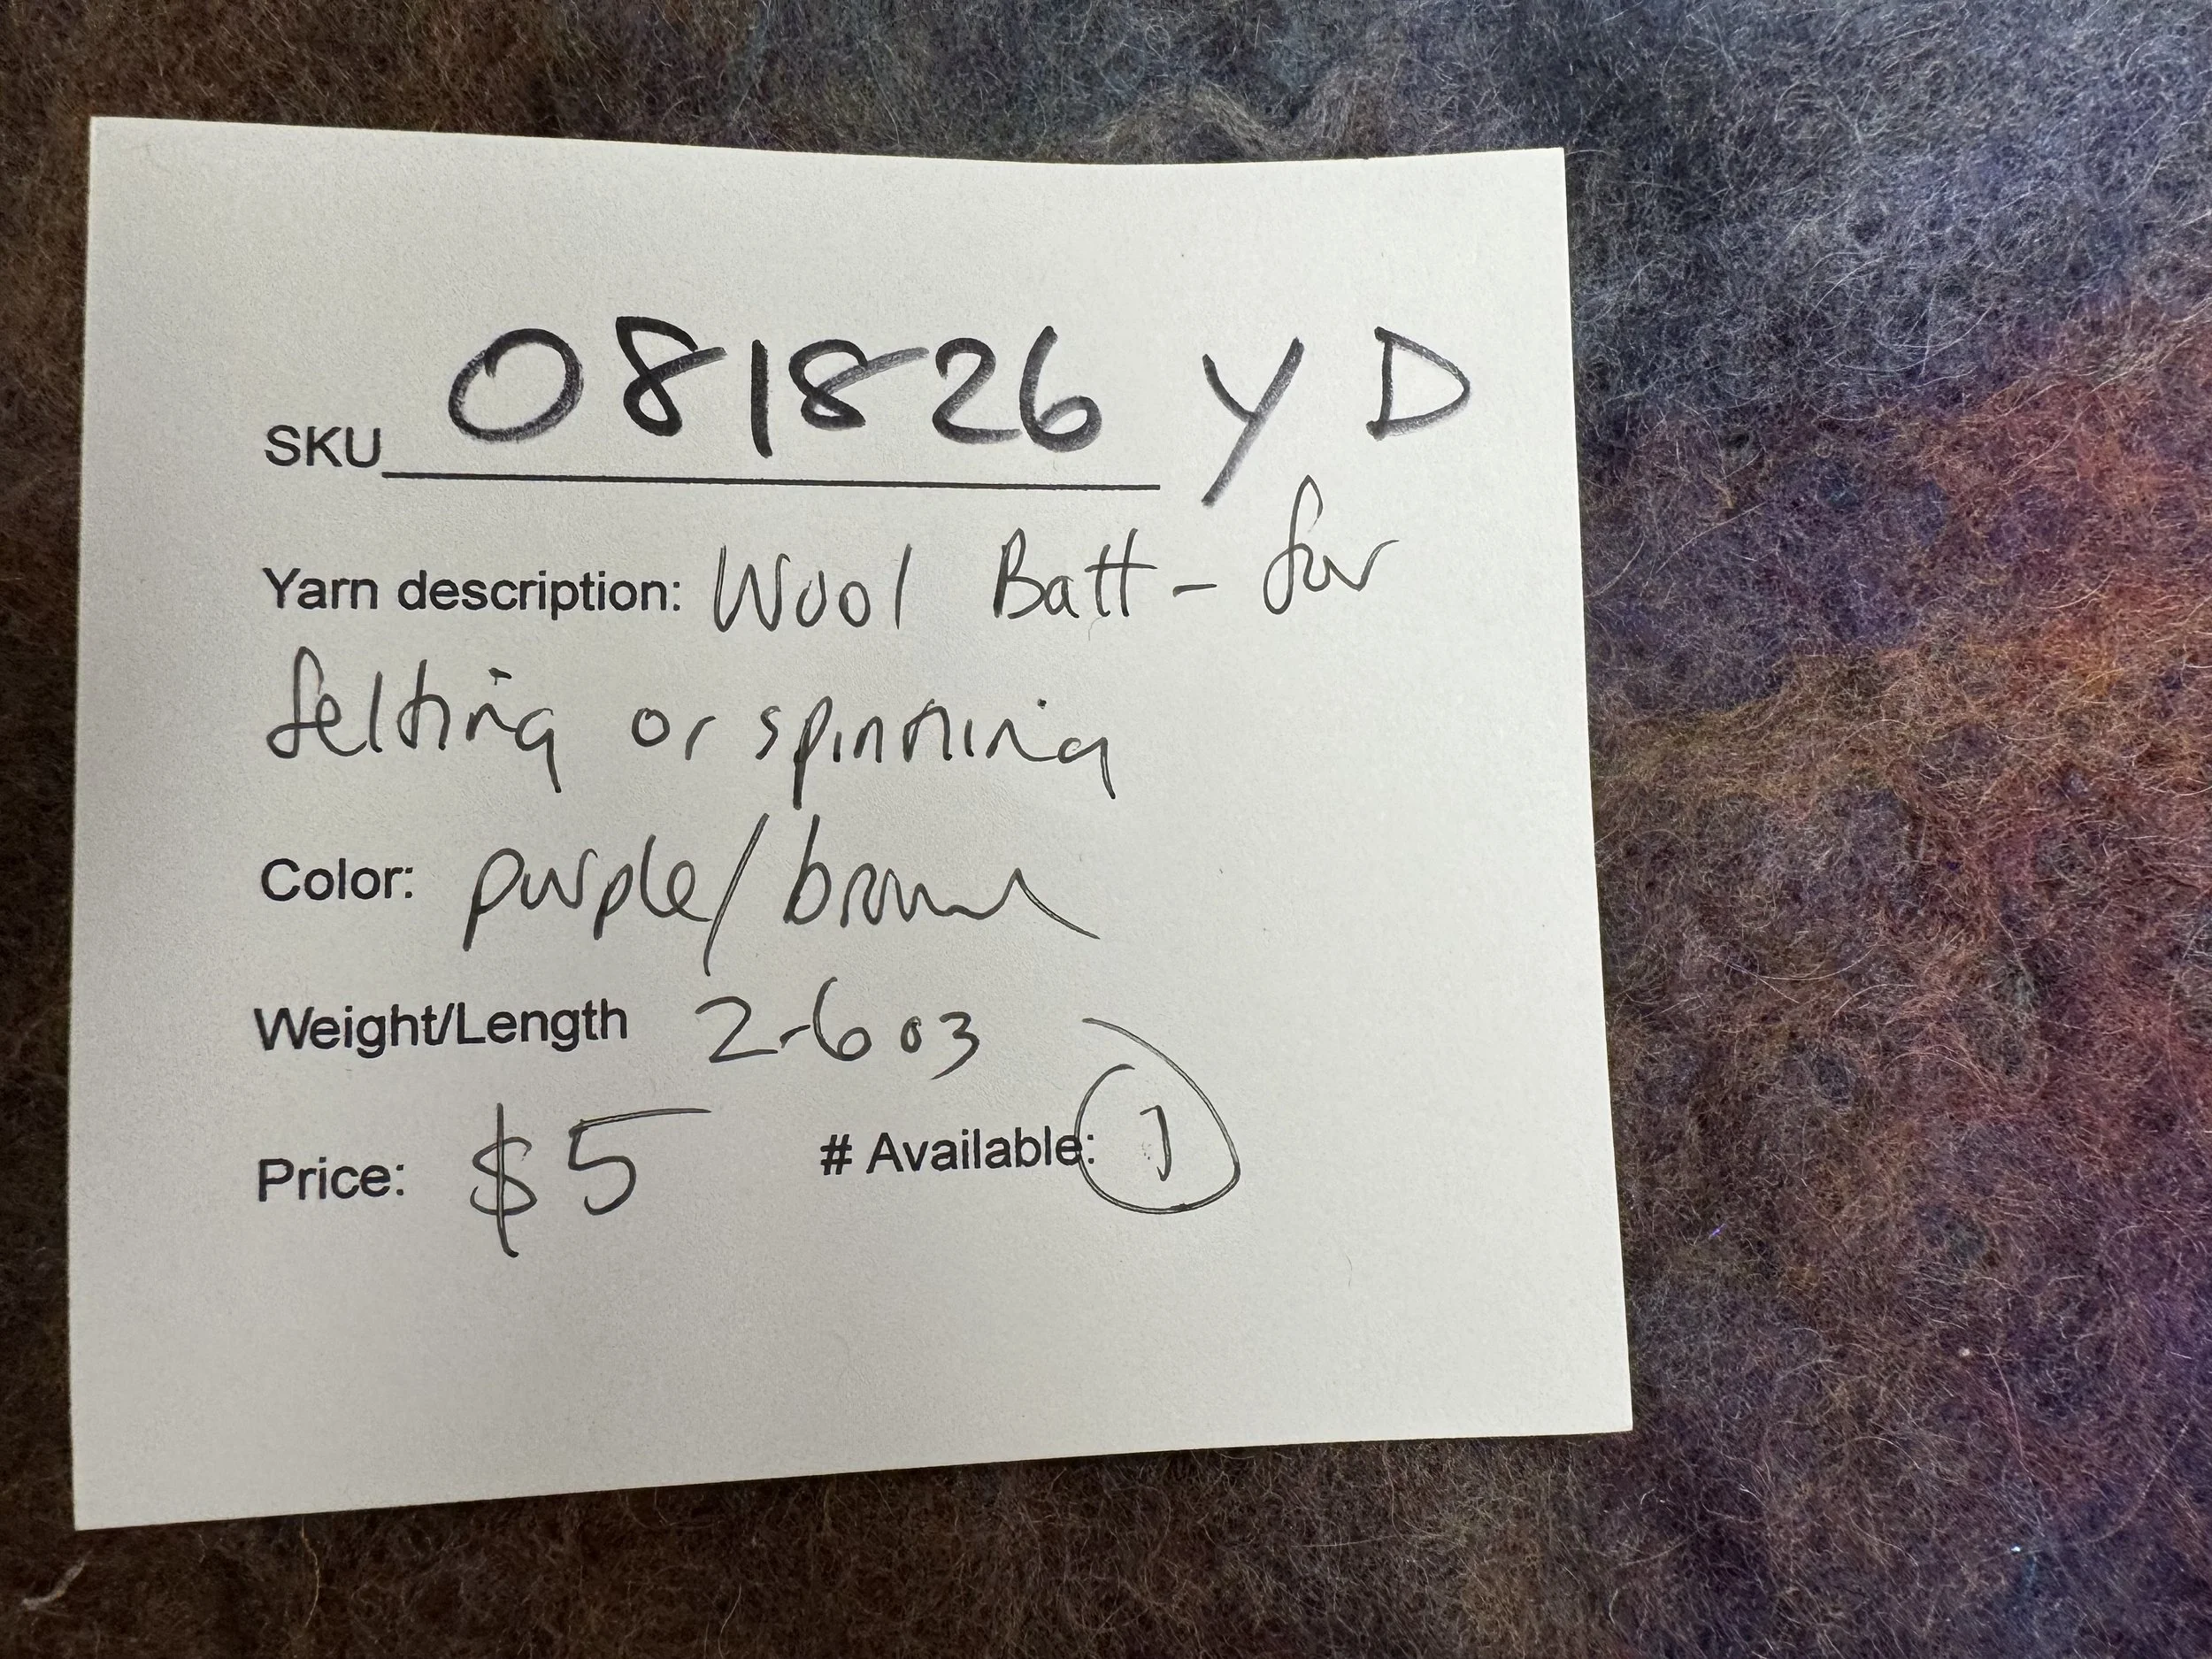 SKU 081826 YD
Yarn description: Wool Batt - for
felting or spinning
Color: purple/brown
Weight/Length 2-6 oz
Price: $5 # Available: 1